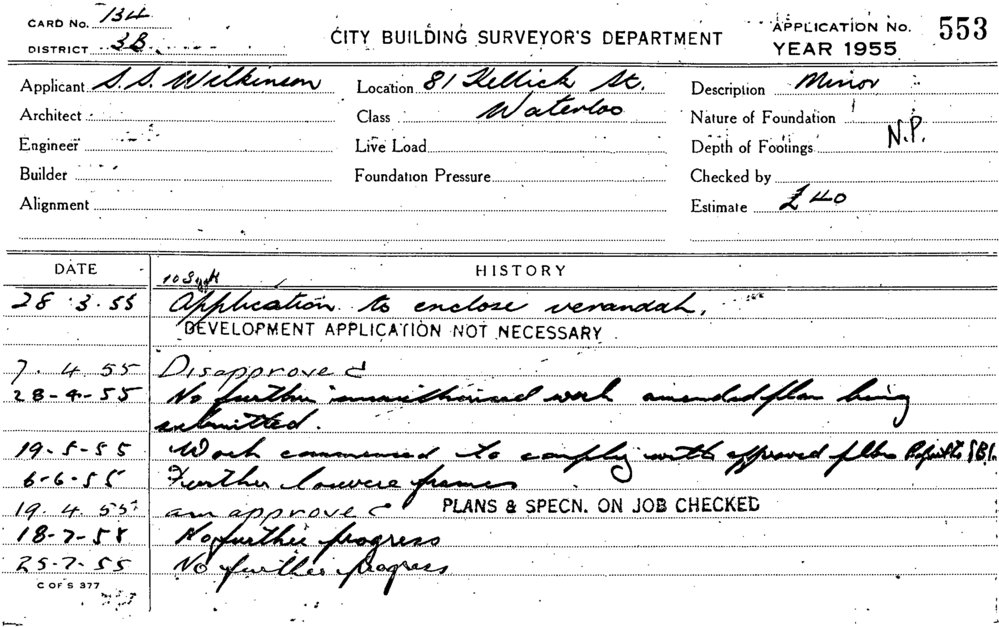 CARD No. 134
DISTRICT 3B
CITY BUILDING SURVEYOR'S DEPARTMENT
APPLICATION No. 553
YEAR 1955
Applicant S. S. Wilkinson
Location 81 Kellick St.
Description Minor
Architect
Class Waterloo
Nature of Foundation
Engineer
Live Load
Depth of Footings N.P.
Builder
Foundation Pressure
Checked by
Alignment
Estimate £40
DATE HISTORY
28 3. 55 Application to enclose verandah.
DEVELOPMENT APPLICATION NOT NECESSARY
7. 4. 55 Disapproved
28-4-55 No further unauthorised work amended plan being
submitted.
19-5-55 Work commenced to comply with approved plan
6-6-55 Further louvere frames
19. 4. 55 am approved PLANS & SPECN. ON JOB CHECKED
18-7-55 No further progress
25-7-55 No further progress
C OF S 377